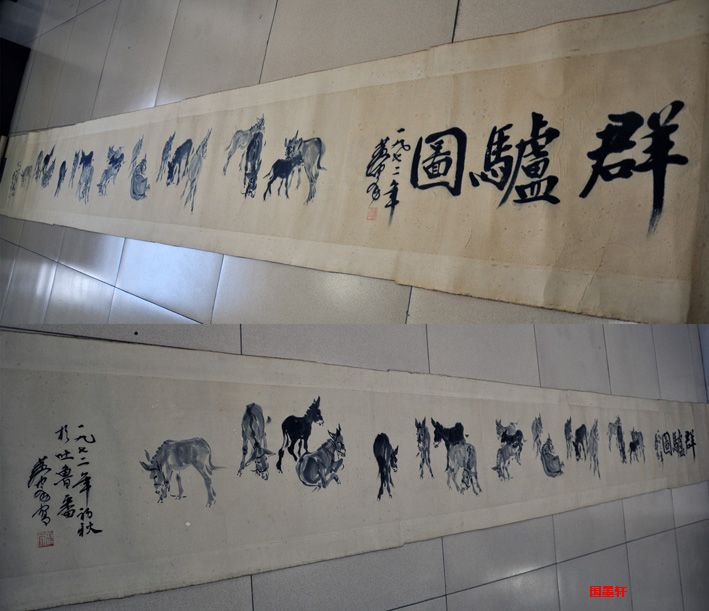 群驢圖
一九七二年
黄胄
群驢圖
一九七二年初秋
於吐魯番
黄胄写
国墨轩